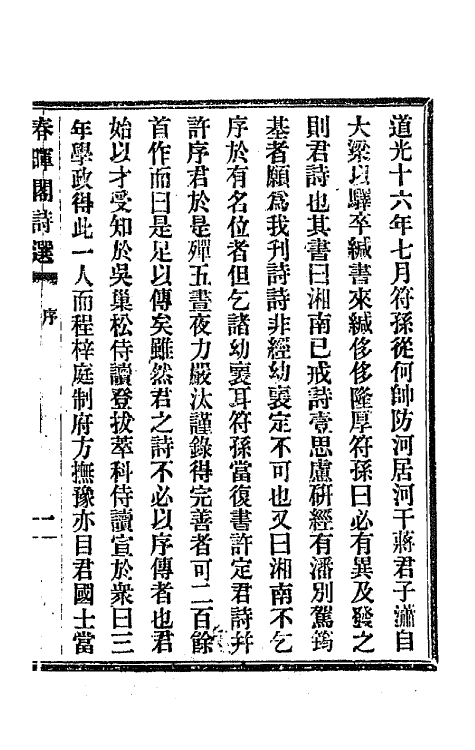 道光十六年七月符孫從何帥防河居河干蔣君子瀟自
大梁以驛卒緘書來緘侈侈隆厚符孫曰必有異及發之
則君詩也其書曰湘南已戒詩壹思慮研經有潘別駕筠
基者願爲我刊詩詩非經幼裵定不可也又曰湘南不乞
序於有名位者但乞諸幼裵耳符孫當復書許定君詩幷
許序君於是殫五晝夜力嚴汰謹錄得完善者可二百餘
首作而曰是足以傳矣雖然君之詩不必以序傳者也君
始以才受知於吳巢松侍讀登拔萃科侍讀宣於衆曰三
年學政得此一人而程梓庭制府方撫豫亦目君國士當
春暉閣詩選
序
一